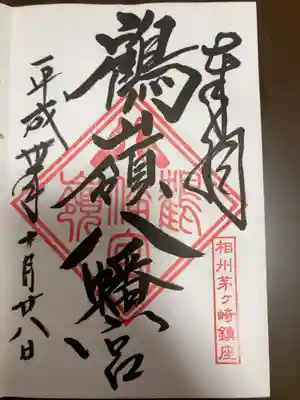 奉拝
相州茅ヶ崎鎮座
鶴嶺八幡宮
平成廿年十月廿八日